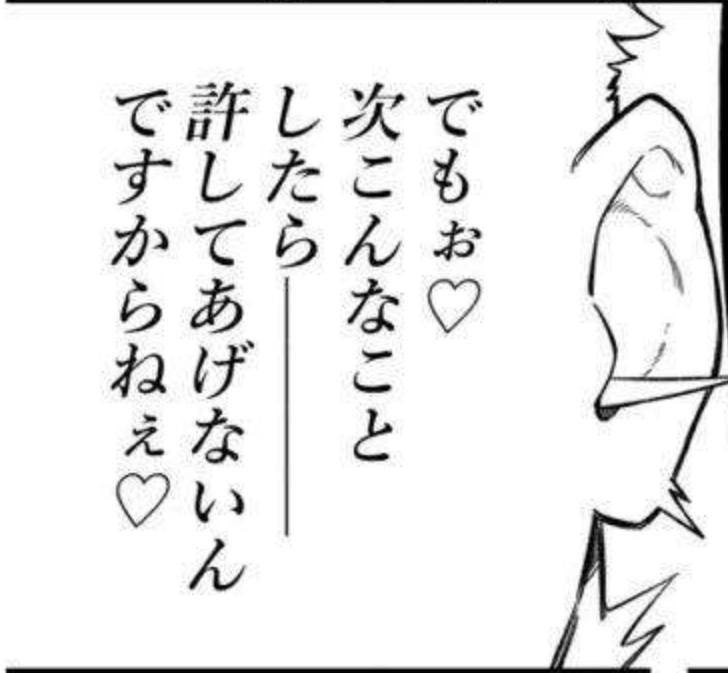 でもぉ♡
次こんなこと
したら――
許してあげないん
ですからねぇ♡